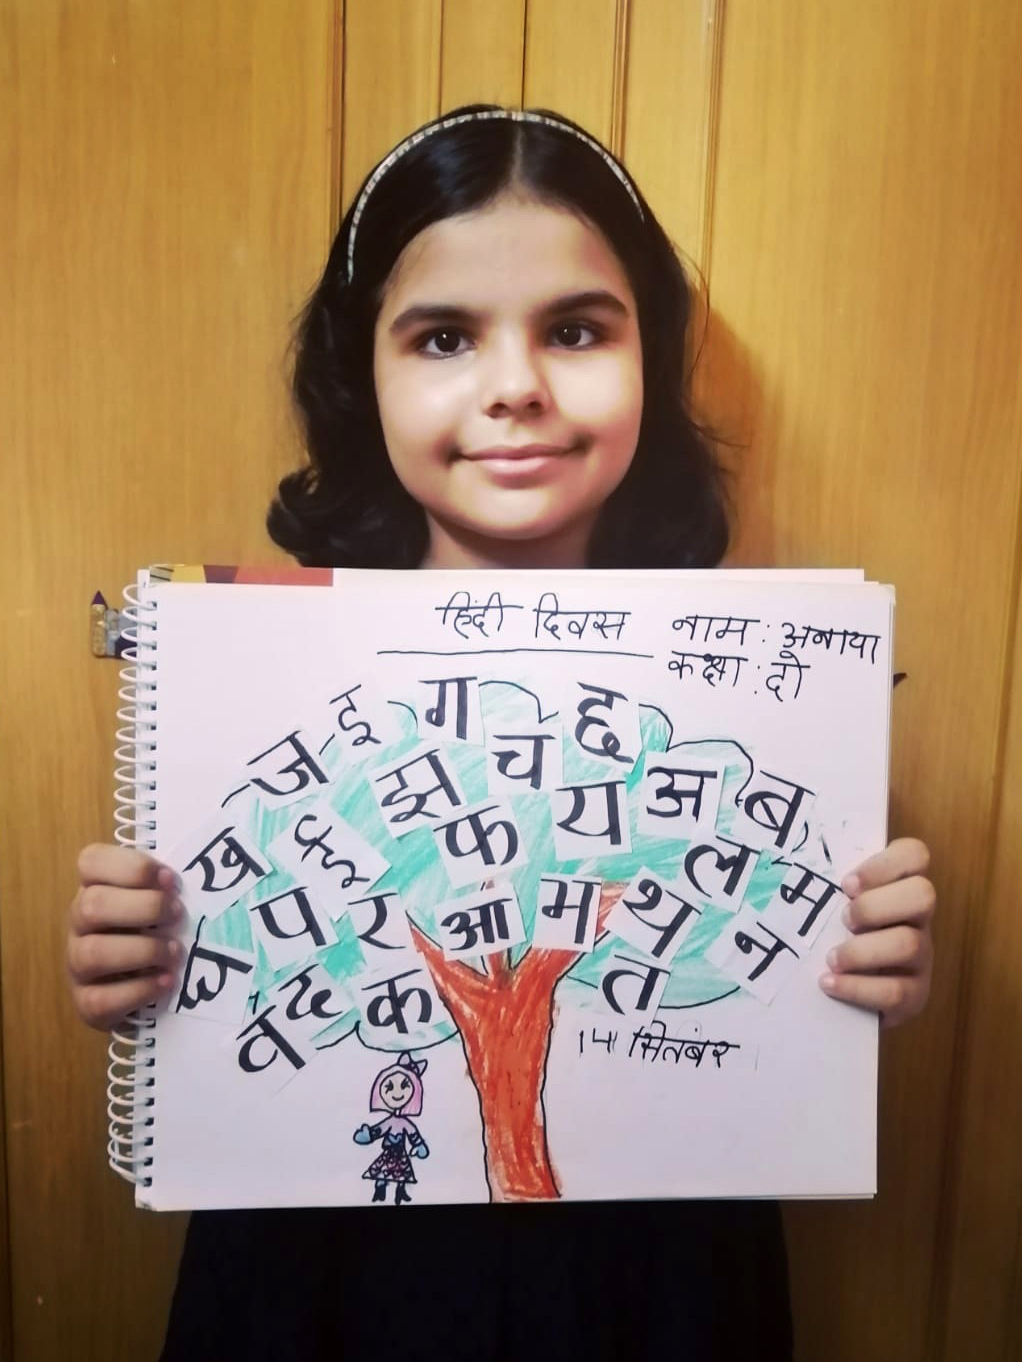 हिंदी दिवस
नाम : अनाया
कक्षा : दो
ज इ ग छ
झ च अ ब
ख ई फ य ल म
प र आ म थ न
घ द क त
व
14 सितंबर